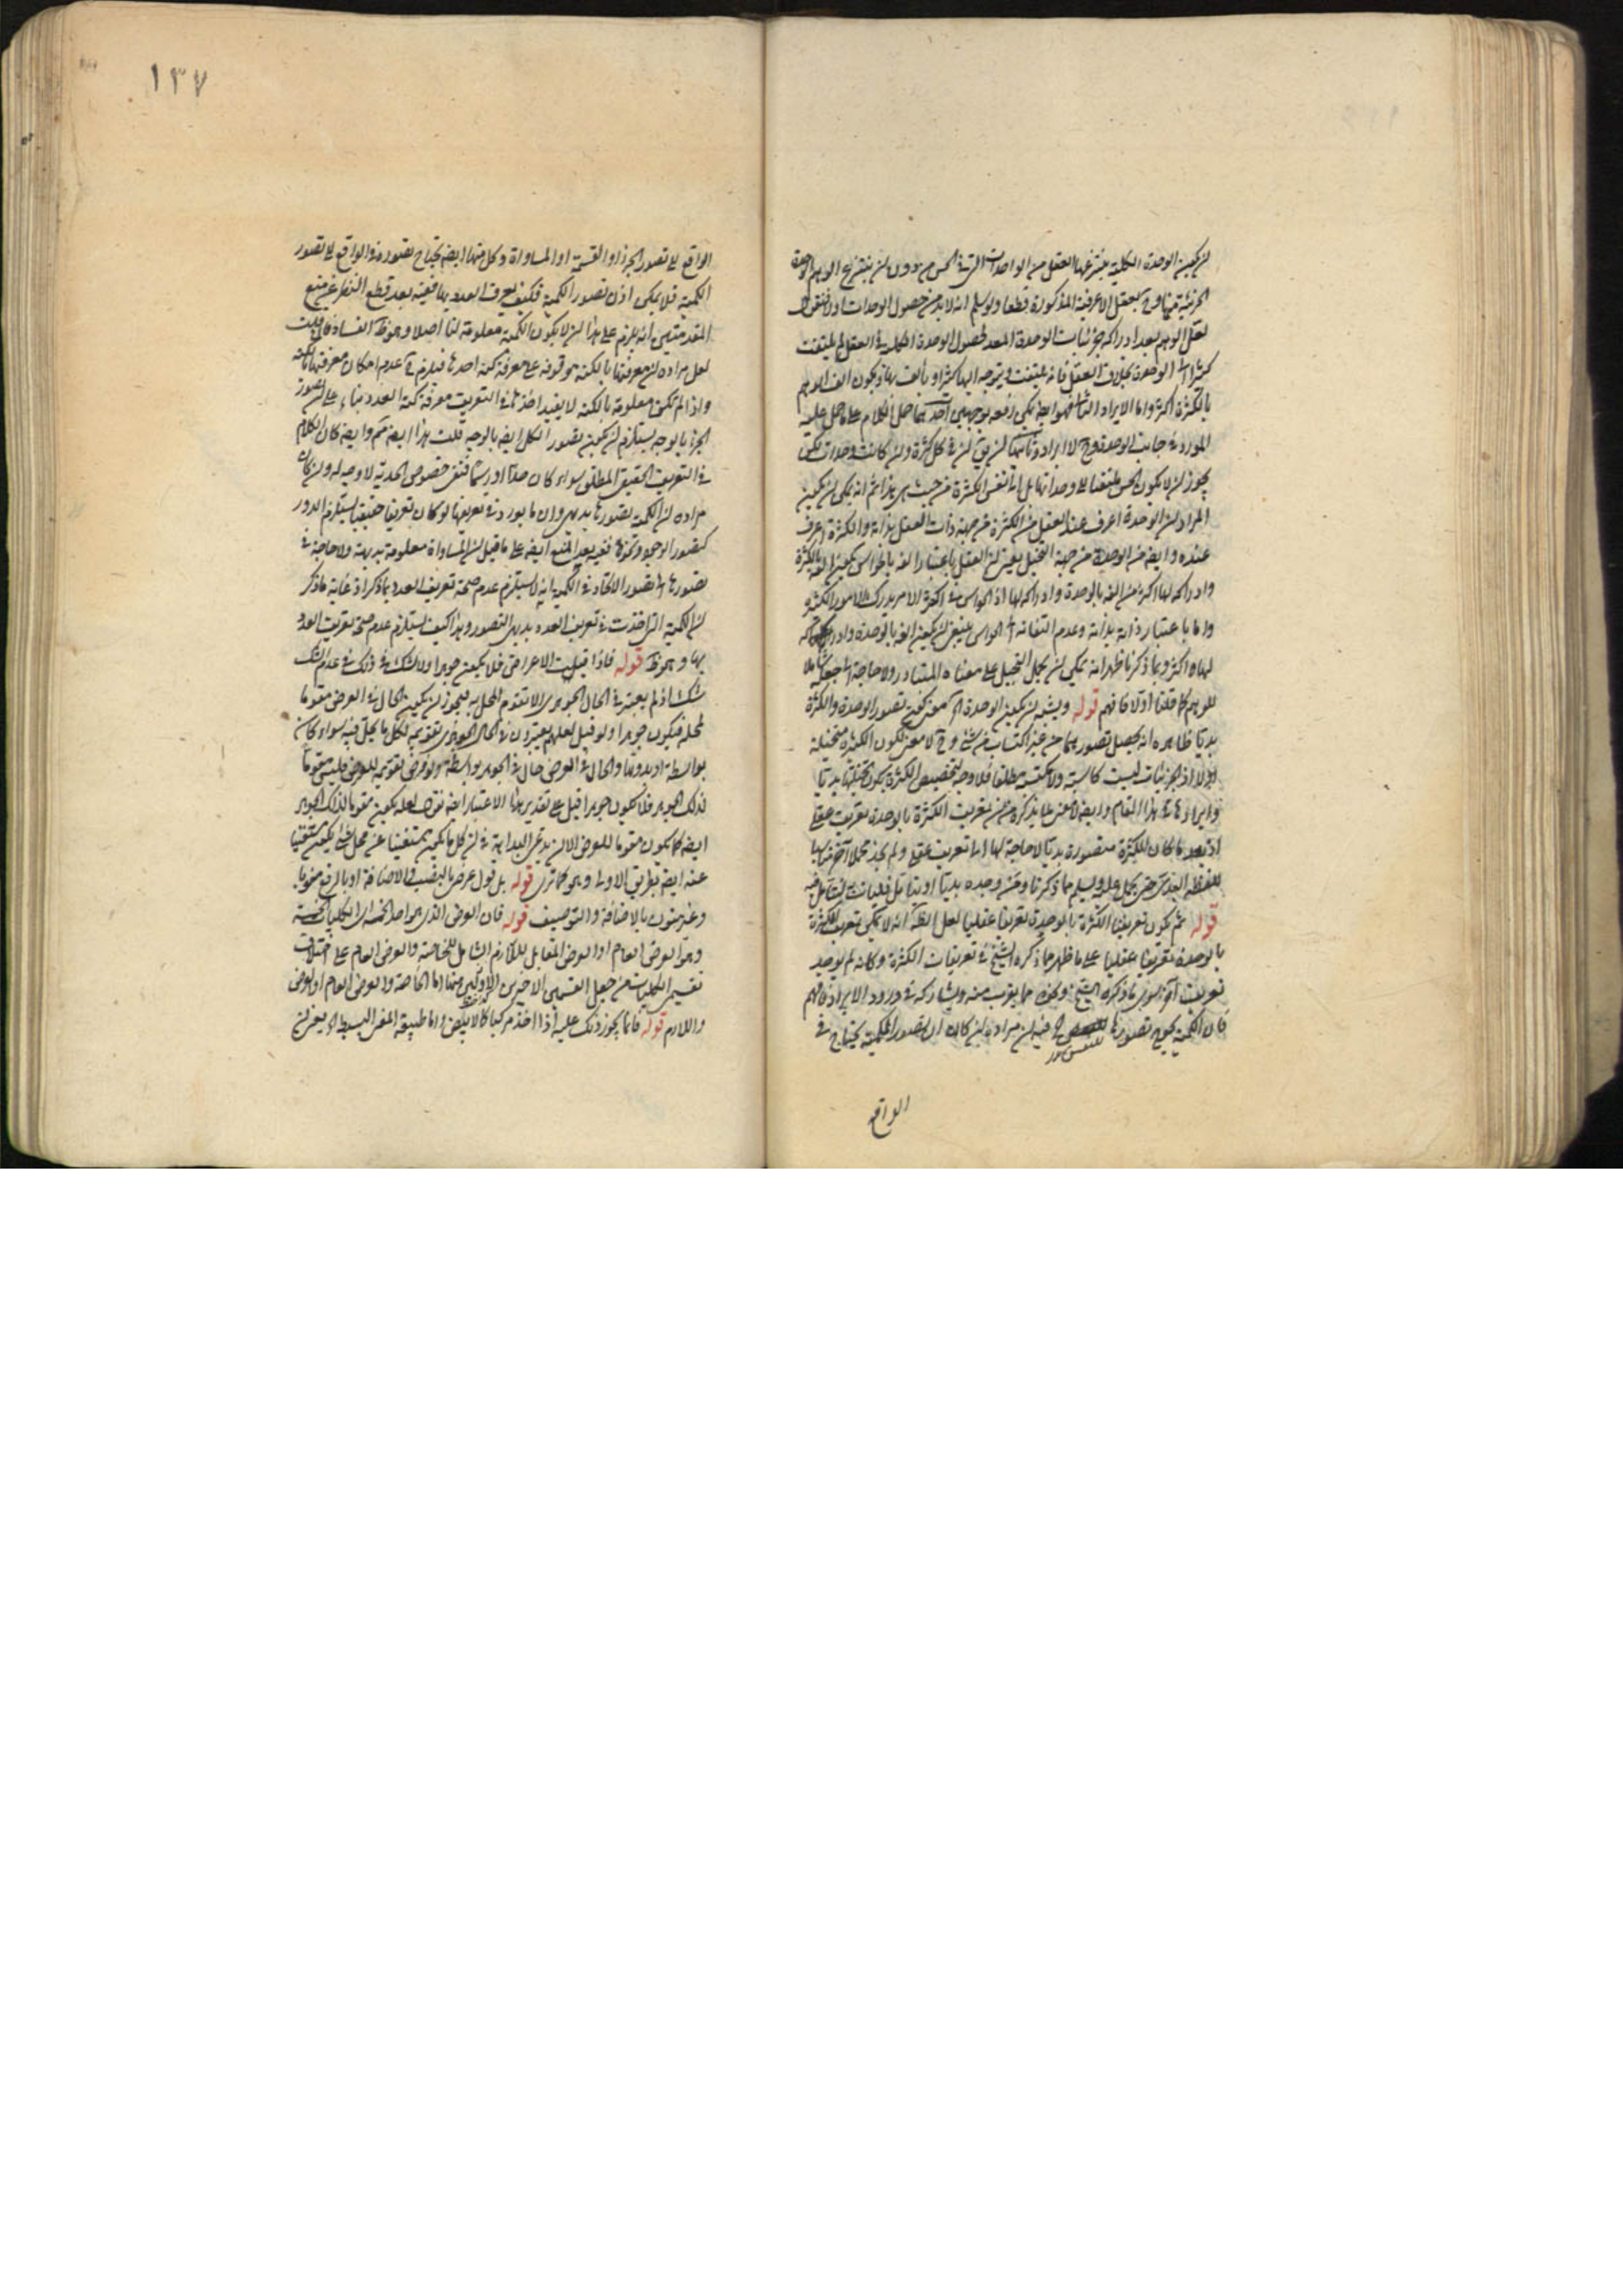 لان يكون الوحدة الكلية ينتزعها العقل من الواحدات التي في الحس من دون ان ينتزع الوهم الوحدة
الجزئية منها وح العقل الاعرفية المذكورة قطعا ولو سلم انه لا بد من حصول الوحدات اولا فنقول
لعل الوهم بعد ادراكه جزئيات الوحدة المعد لحصول الوحدة الكلية في العقل لم يلتفت
كثيرا الى الوحدة بخلاف العقل فانه يلتفت ويتوجه اليها كثيرا ويألف بها ويكون الف الوهم
بالكثرة اكثر واما الايراد الثاني فهو ايضا يمكن دفعه بوجهين احدهما حمل الكلام على ما حمل عليه
المورد في جانب الوحدة وح لا ايراد وثانيهما ان في كل كثرة وان كانت وحدات لكن
يجوز ان لا يكون الحس ملتفتا الى وحداتها بل الى نفس الكثرة من حيث هي هذا ثم انه يمكن ان يكون
المراد ان الوحدة اعرف عند العقل من الكثرة من جهة ذات العقل بذاته والكثرة اعرف
عنده وايضا من الوحدة من جهة التخيل يعني ان العقل باعتبار الفه بالحواس يكون الفه بالكثرة
وادراكه لها اكثر من الفه بالوحدة وادراكه لها اذ الحواس في اكثر الامر يدرك الامور الكثيرة
واما باعتبار ذاته بذاته وعدم التفاته الى الحواس فينبغي ان يكون الفه بالوحدة وادراكه
لها اكثر وبما ذكرنا ظهر انه يمكن ان يحمل التخيل على معناه المتبادر ولا حاجة الى جعله شاملا
للوهم كما قلنا اولا فافهم قوله ويشبه ان يكون الوحدة الخ معنى كون تصور الوحدة والكثرة
بديا ظاهره انه يحصل تصورهما من غير اكتساب من شيء وح لا معنى لكون الكثرة متخيلة
اولا اذ الجزئيات ليست كاسبة ولا مكتسبة مطلقا فلا وجه لتخصيص الكثرة بكون تخيلها بديا
وايرادها في هذا المقام وايضا لا معنى لما يذكره من ان تعريف الكثرة بالوحدة تعريف عقلي
اذ بعد ما كان الكثرة متصورة بديا لا حاجة لها الى تعريف عقلي ولم نجد محملا آخر مناسبا
للفظ البدي حتى يحمل عليه ويسلم مما ذكرنا ومن وجده بديا او بتأمل فليأت به ليتأمل فيه
قوله ثم يكون تعريفنا الكثرة بالوحدة تعريفا عقليا لعل الظ انه لا يمكن تعريف الكثرة
بالوحدة تعريفا عقليا على ما ظهر مما ذكره الشيخ في تعريفات الكثرة وكانه لم يوجد
تعريف آخر سوى ما ذكره الشيخ ونحوه مما يقرب منه ويشاركه في ورود الايراد فافهم
فان الكمية يحوج تصورها الخ فيه ان مراده ان كان ان تصور الكمية يحتاج في
الواقع
١٣٧
الواقع الى تصور الجزء او القسمة او المساواة وكل منها ايضا يحتاج تصوره في الواقع الى تصور
الكمية فلا يمكن اذن تصور الكمية فكيف يعرف العدد بها ففيه بعد قطع النظر عن منع
المقدمتين انه يلزم على هذا ان لا يكون الكمية معلومة لنا اصلا وهو ظ الفساد فان قلت
لعل مراده ان معرفتها بالكنه موقوفة على معرفة كنه احدها فيلزم ح عدم امكان معرفتها بالكنه
واذا لم تكن معلومة بالكنه لا يفيد اخذها في التعريف معرفة كنه العدد بناء على ان تصور
الجزء بالوجه يستلزم ان يكون تصور الكل ايضا بالوجه قلت هذا ايضا مم وايضا كان الكلام
في التعريف الحقيقي المطلق سواء كان حدا او رسما فنفي خصوص الحدية لا وجه له وان كان
مراده ان الكمية تصورها بديهي وان ما يورد في تعريفها لو كان تعريفا حقيقيا يستلزم الدور
كتصور الوجود ونحوه ففيه بعد المنع ايضا على ما قيل ان المساواة معلومة بديهة ولا حاجة في
تصورها الى تصور الاتحاد في الكمية انه لا يستلزم عدم صحة تعريف العدد بما ذكر اذ غاية ما ذكر
ان الكمية التي اخذت في تعريف العدد بديهي التصور وهذا كيف يستلزم عدم صحة تعريف العدد
بها وهو ظ قوله فاذا قبلت الاعراض فلا يكون جوهرا ولا شك في ذلك في عدم الشك
شك اذ لم يعتبر في الحال الجوهري الا تقوم المحل به فيجوز ان يكون الحال في العرض مقوما
لمحله فيكون جوهرا ولو قيل لعلهم يعتبرون في الحال الجوهري تقويمه لكل ما يحل فيه سواء كان
بواسطة او بدونها والحال في العرض حال في الجوهر بواسطة ولو فرض تقويمه للعرض فليس مقوما
لذلك الجوهر فلا يكون جوهرا قيل على تقدير هذا الاعتبار ايضا نقول لعله يكون مقوما لذلك الجوهر
ايضا كما يكون مقوما للعرض الا ان يدعى البداهة في ان كل ما يكون مستغنيا عنه محل شيء يكون مستغنيا
عنه ايضا بطريق الاولى وهو كما ترى قوله بل قول عرض بالنصب في الاضافة او بالرفع منونا
وغير منون بالاضافة والتوصيف قوله فان العرض الذي هو احد الخمسة اى الكليات الخمسة
وهو العرض العام او العرض المقابل للذاتى الشامل للخاصة والعرض العام على اختلاف
تقسيم الكليات من جعل القسمين الاخيرين الاوليين منها اما الخاصة والعرض العام او العرض
واللازم قوله فانما يجوز ذلك عليه اذا اخذ مركبا كالابيض واما طبيعة المعنى البسيط الخ يعني ان